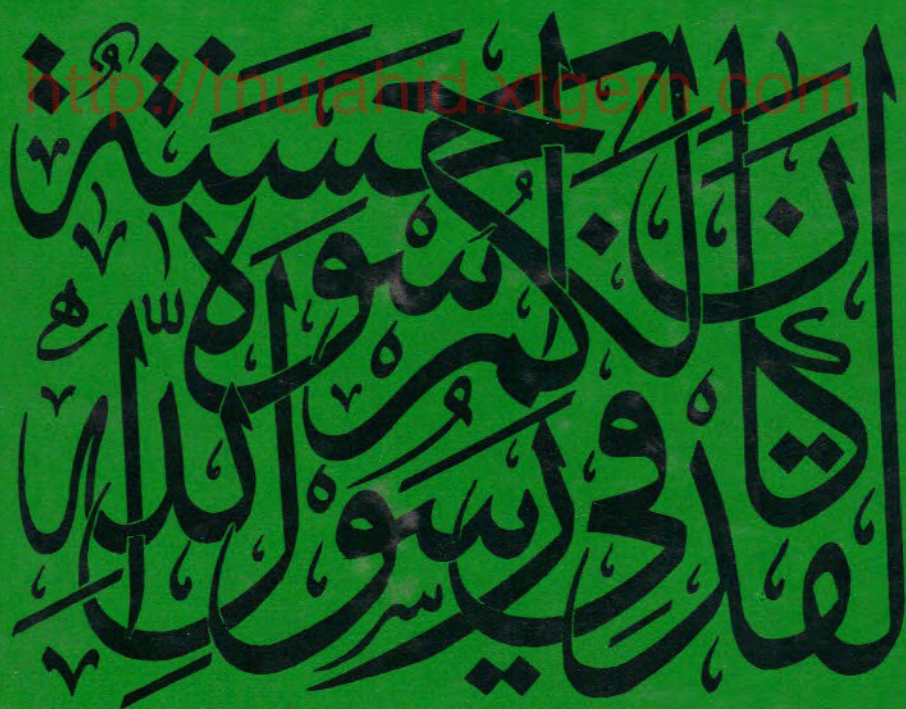 http://mujahid.xtgem.com
لَقَدْ كَانَ لَكُمْ فِي رَسُولِ اللّٰهِ أُسْوَةٌ حَسَنَةٌ